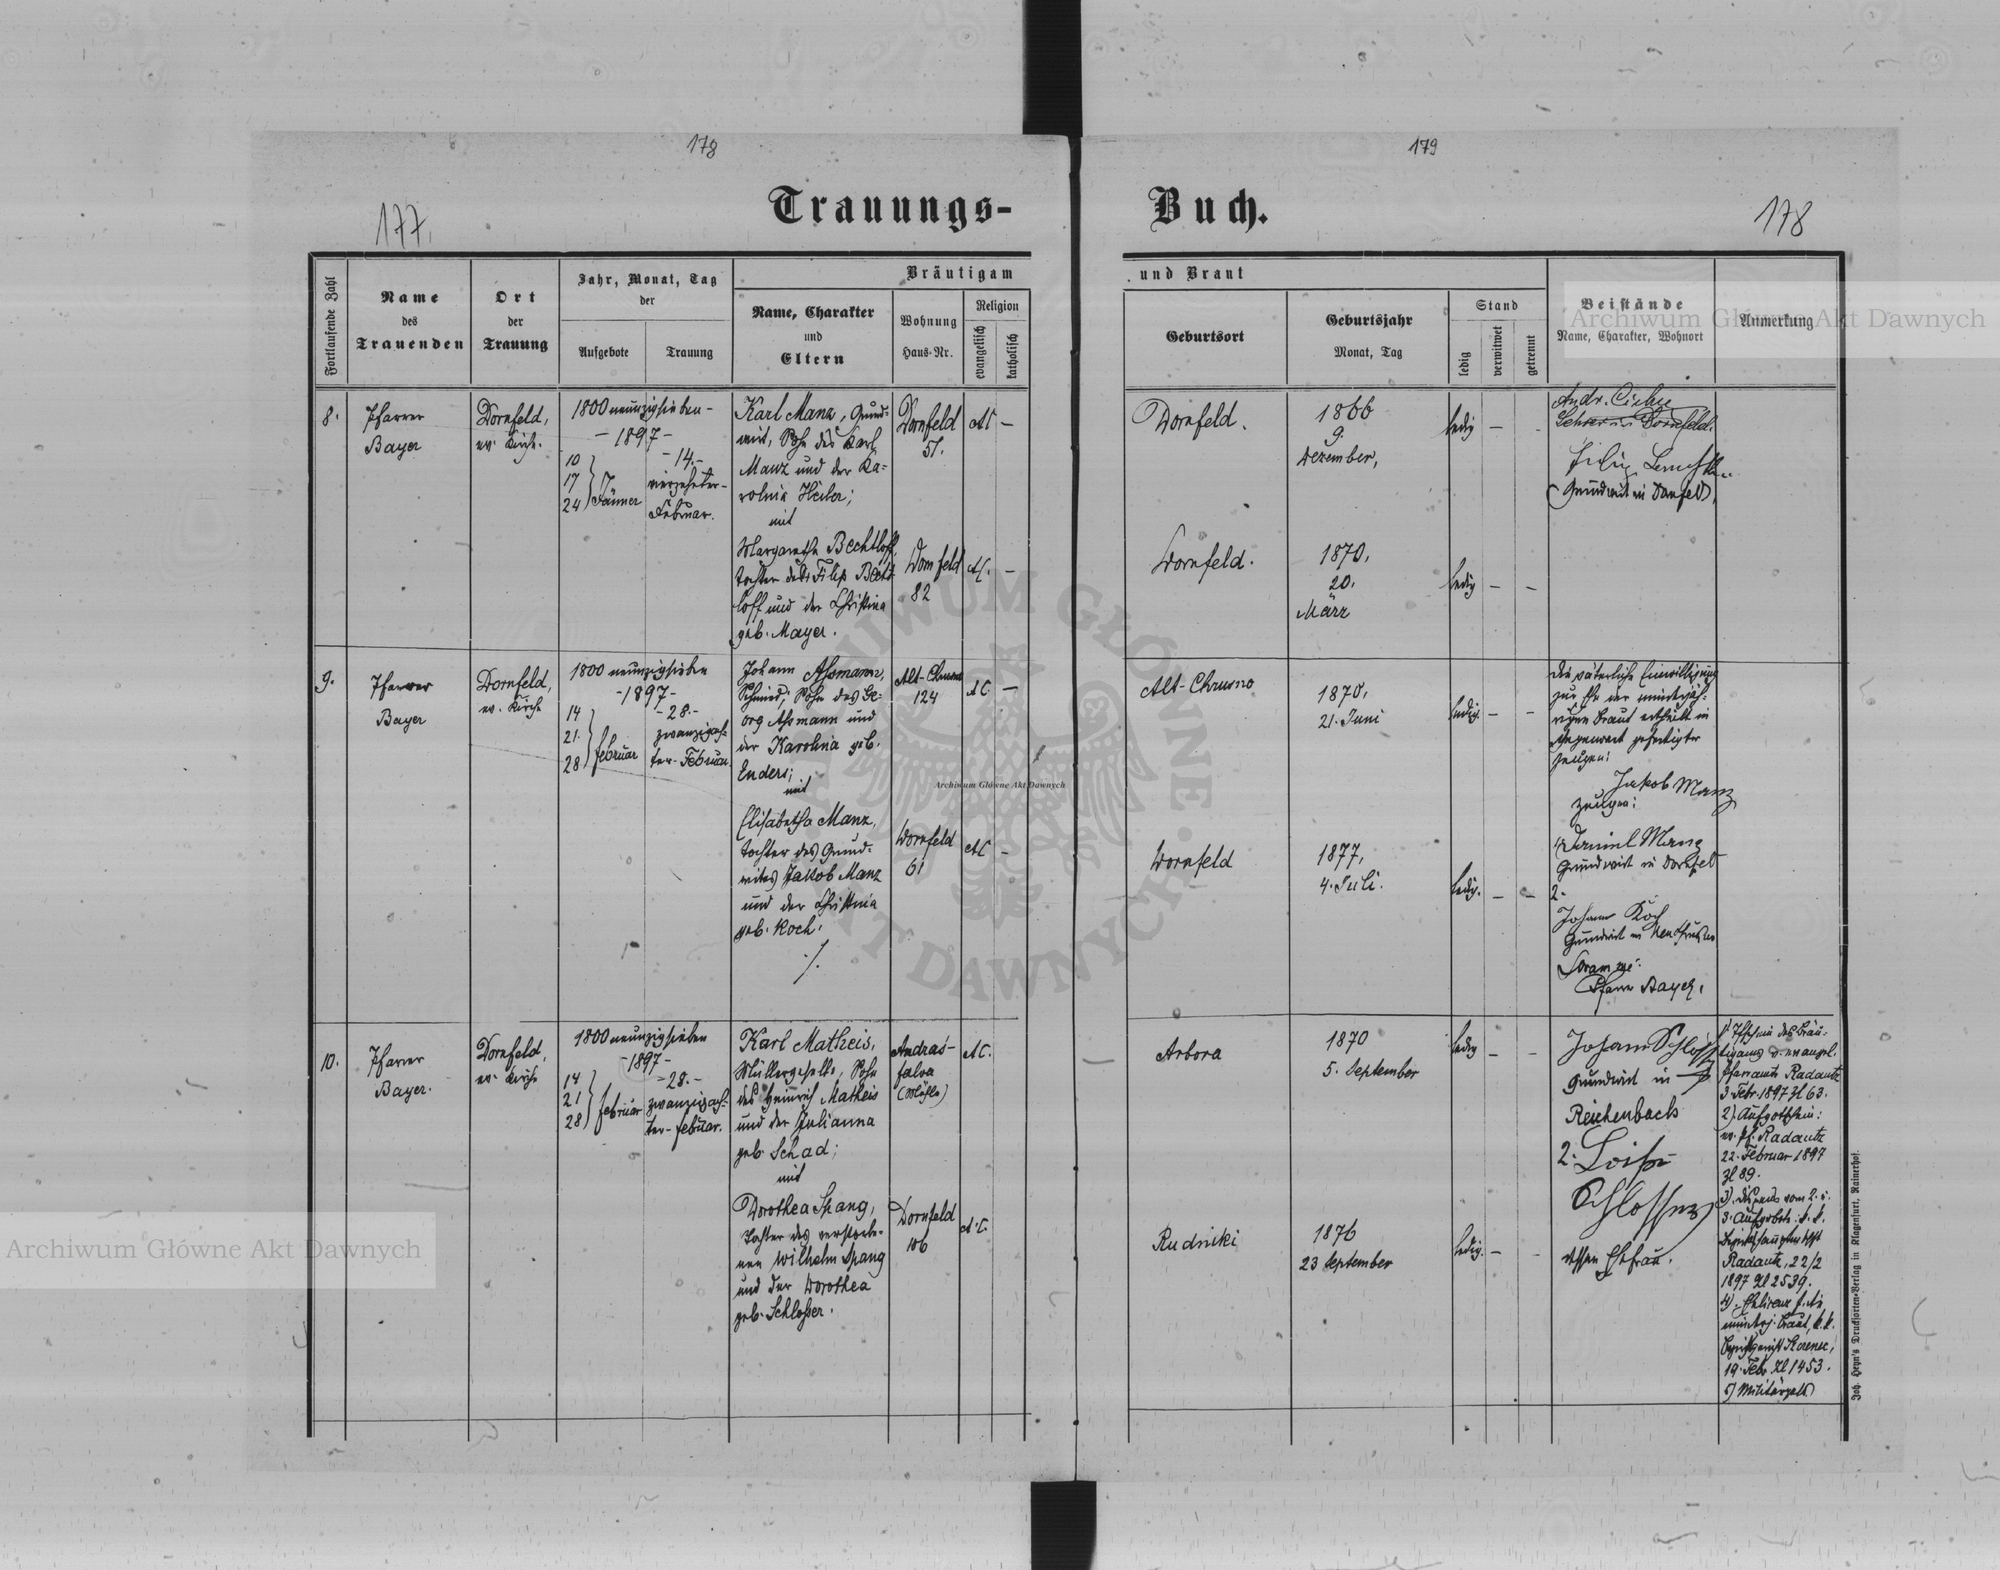 178
179
177.
178
Trauungs-
Buch.
Fortlaufende Zahl
Name
des
Trauenden
Ort
der
Trauung
Jahr, Monat, Tag
der
Aufgebote
Trauung
Bräutigam
Name, Charakter
und
Eltern
Wohnung
Haus-Nr.
Religion
evangelisch
katholisch
und Braut
Geburtsort
Geburtsjahr
Monat, Tag
Stand
ledig
verwitwet
getrennt
Beistände
Name, Charakter, Wohnort
Anmerkung
8.
Pfarrer
Bayer
Dornfeld,
ev. Kirche.
1800 neunzigsieben-
- 1897 -
10
17
24
Jänner
- 14.-
vierzehnter-
Februar.
Karl Manz, Grund-
wirt, Sohn des Karl
Manz und der Ka-
rolina Heiler;
mit
Margaretha Bechtloff,
Tochter des Filip Becht
loff und der Christina
geb. Mayer.
Dornfeld
51.
AC -
Dornfeld
82
AC. -
Dornfeld.
1866
9.
Dezember,
ledig - -
Dornfeld.
1870,
20.
März
ledig - -
Andr.
Lehrer in Dornfeld.
Filip
Grundwirt in Dornfeld,
9.
Pfarrer
Bayer
Dornfeld,
ev. Kirche
1800 neunzigsieben
- 1897 -
14
21.
28
februar
- 28.-
zwanzigach-
ter- Februar.
Johann Assmann,
Schmied, Sohn des Ge-
org Assmann und
der Karolina geb.
Enders;
mit
Elisabetha Manz,
Tochter des Grund-
wirtes Jakob Manz
und der Christina
geb. Koch.
./.
Alt-Chrusno
124
AC -
Dornfeld
61
AC -
Alt-Chrusno
1870,
21. Juni
ledig. - -
Dornfeld
1877,
4. Juli.
ledig. - -
Die väterliche Einwilligung
zur Ehe der minderjäh-
rigen Braut ertheilt in
Gegenwart gefertigter
Zeugen:
Jakob Manz
Zeugen:
1, Daniel Manz
Grundwirt in Dornfeld
2.
Johann Koch
Grundwirt in
Coram me:
Pfarrer Bayer.
10.
Pfarrer
Bayer.
Dornfeld,
ev. Kirche
1800 neunzigsieben
- 1897 -
14
21
28
februar
- 28.-
zwanzigach-
ter- februar.
Karl Matheis,
Müllergehilfe, Sohn
des Heinrich Matheis
und der Julianna
geb. Schad;
mit
Dorothea Spang,
Tochter des verstorbe-
nen Wilhelm Spang
und der Dorothea
geb. Schlosser.
Andras-
falva
(Mühle)
AC.
Dornfeld
106
A.C.
Arbora
1870
5. September
ledig - -
Rudniki
1876
23 September
ledig. - -
Johann Schlosser
Grundwirt in
Reichenbach
2.
Schlosser
dessen Ehefrau.
1) des Bräu-
tigams v. evangel.
Pfarramte Radautz
3 Febr. 1897 Zl 63.
2) Aufgotschein:
ev. Pf. Radautz
22. Februar 1897
Zl 89.
3) Dispens vom 2. u.
3. Aufgebote: k. k.
Bezirkshauptmannschft
Radautz, 22/2
1897 Zl 2539.
4)
minderj. Braut, k. k.
Bezirksgericht
19. Febr. Zl. 1453.
5)
Joh. Heyn's Drucksorten-Verlag in Klagenfurt, Rainerhof.
Archiwum Główne Akt Dawnych
Archiwum Główne Akt Dawnych
Archiwum Główne Akt Dawnych
ARCHIWUM GŁÓWNE AKT DAWNYCH